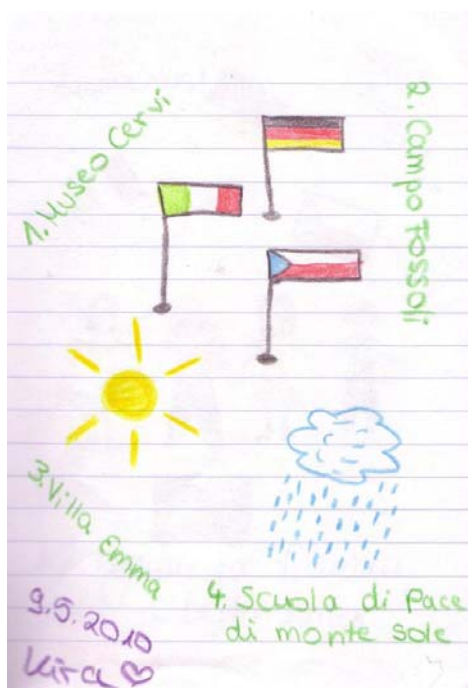 1. Museo Cervi
2. Campo Fossoli
3. Villa Emma
4. Scuola di Pace
di monte sole
9.5.2010
Kira ♡